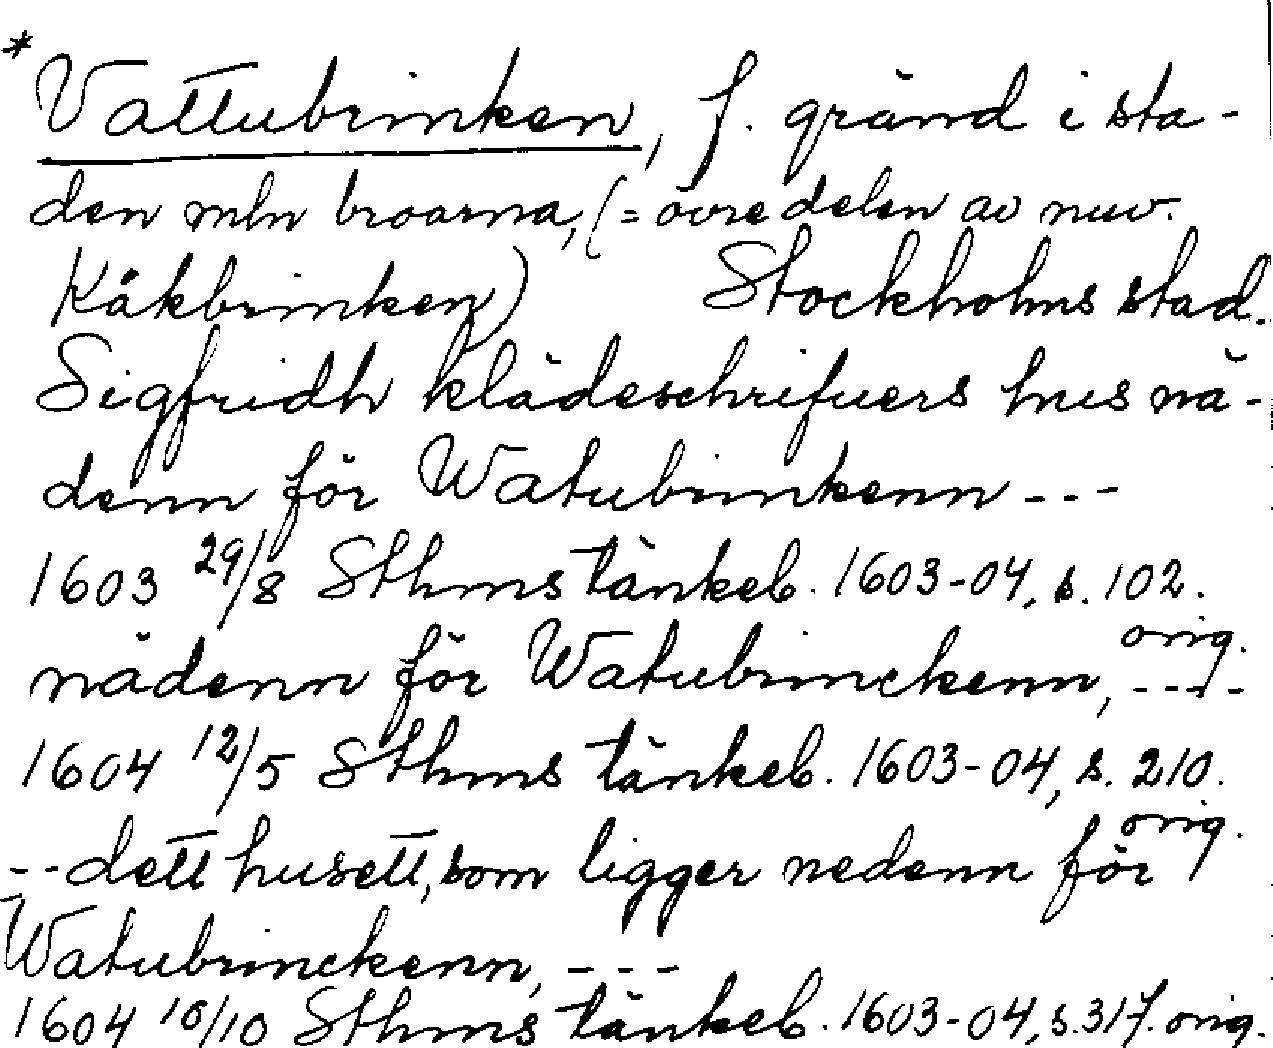 * Vattubrinken, f. gränd i sta-
den mln broarna, (= övre delen av nuv.
Kåkbrinken) Stockholms stad.
Sigfridh klädeschrifuers hus nä-
denn för Watubrinkenn ---
1603 29/8 Sthms tänkeb. 1603-04, s. 102.
orig.
nädenn för Watubrinckenn, ----
1604 12/5 Sthms tänkeb. 1603-04, s. 210.
orig.
--dett husett, som ligger nedenn för
Watubrinckenn, ---
1604 10/10 Sthms tänkeb. 1603-04, s. 317. orig.